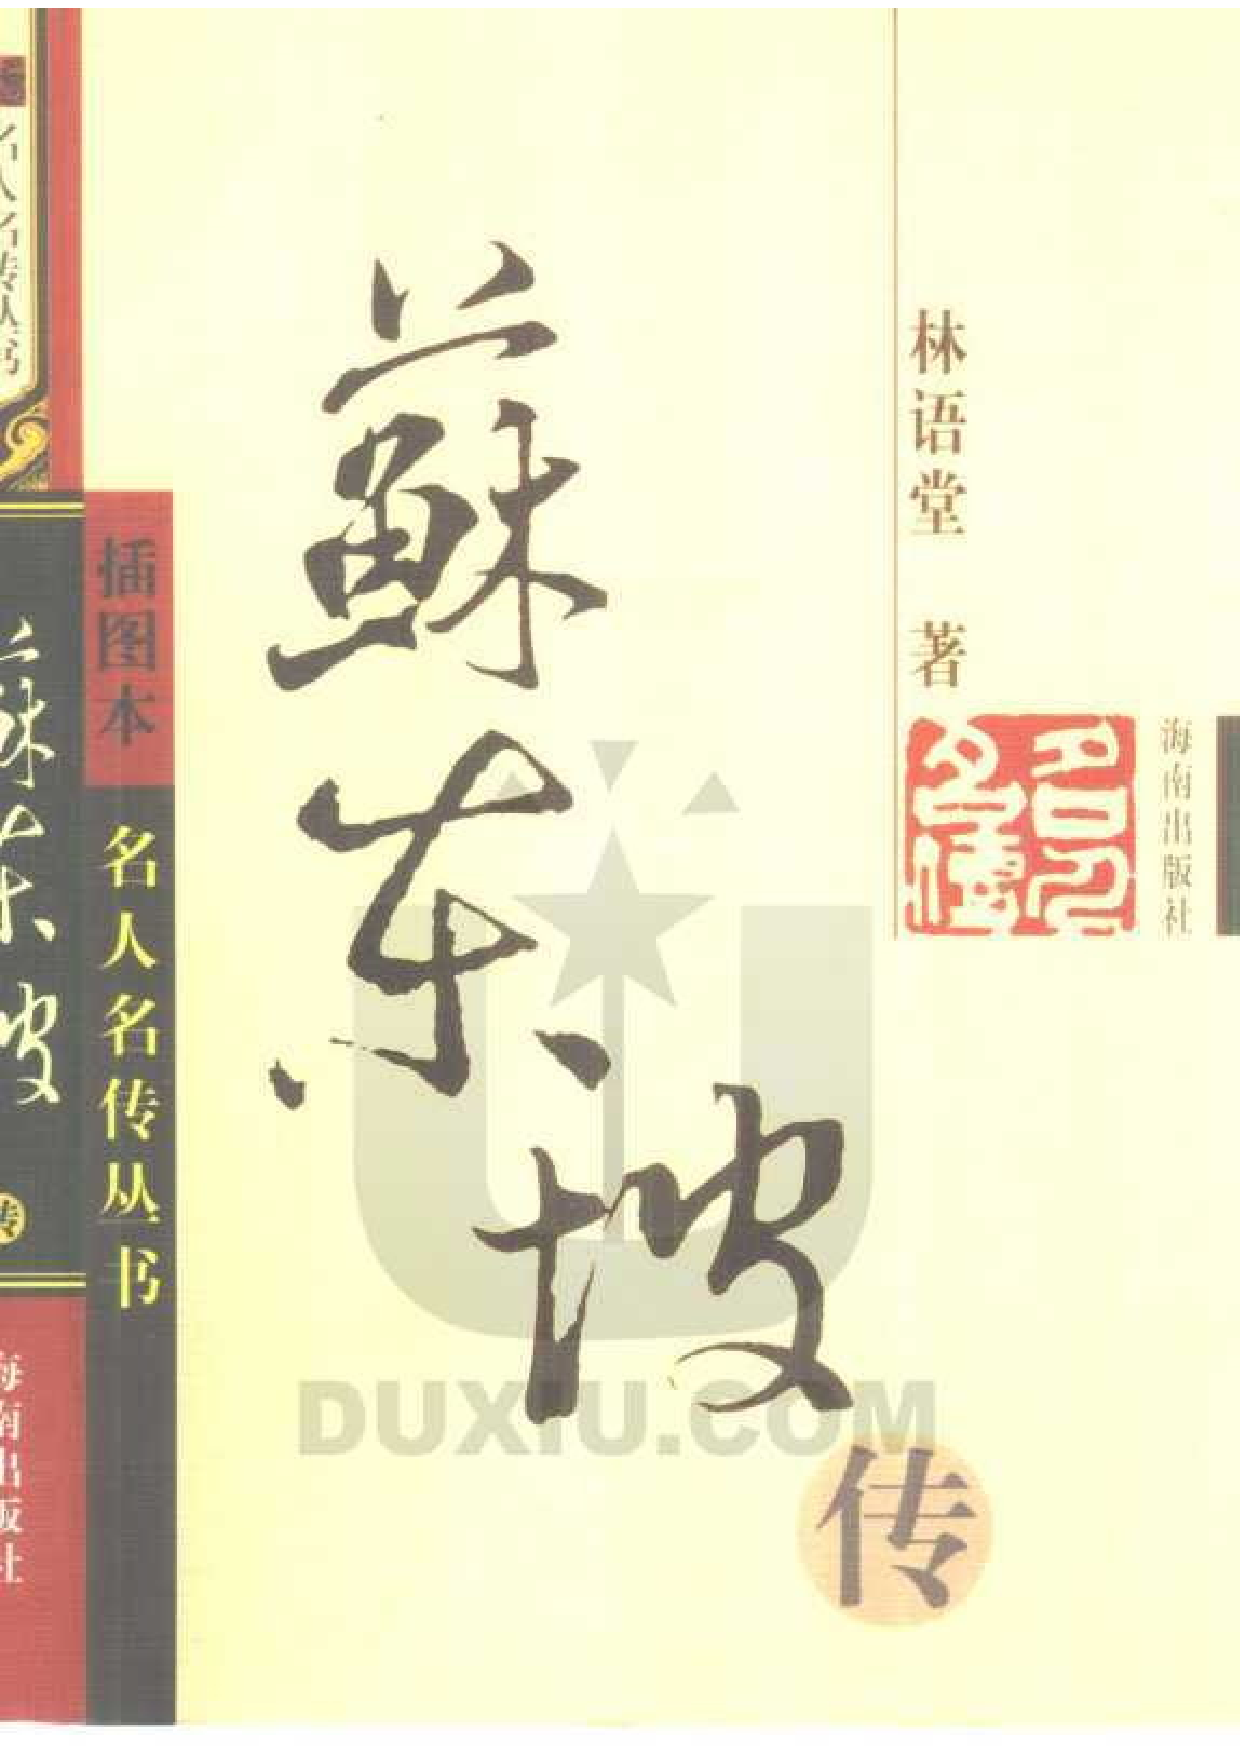 林语堂 著
蘇东坡
传
插图本
名人名传丛书
海南出版社
名人名传
DUXIU.COM
名人名传丛书
蘇东坡
传
海南出版社